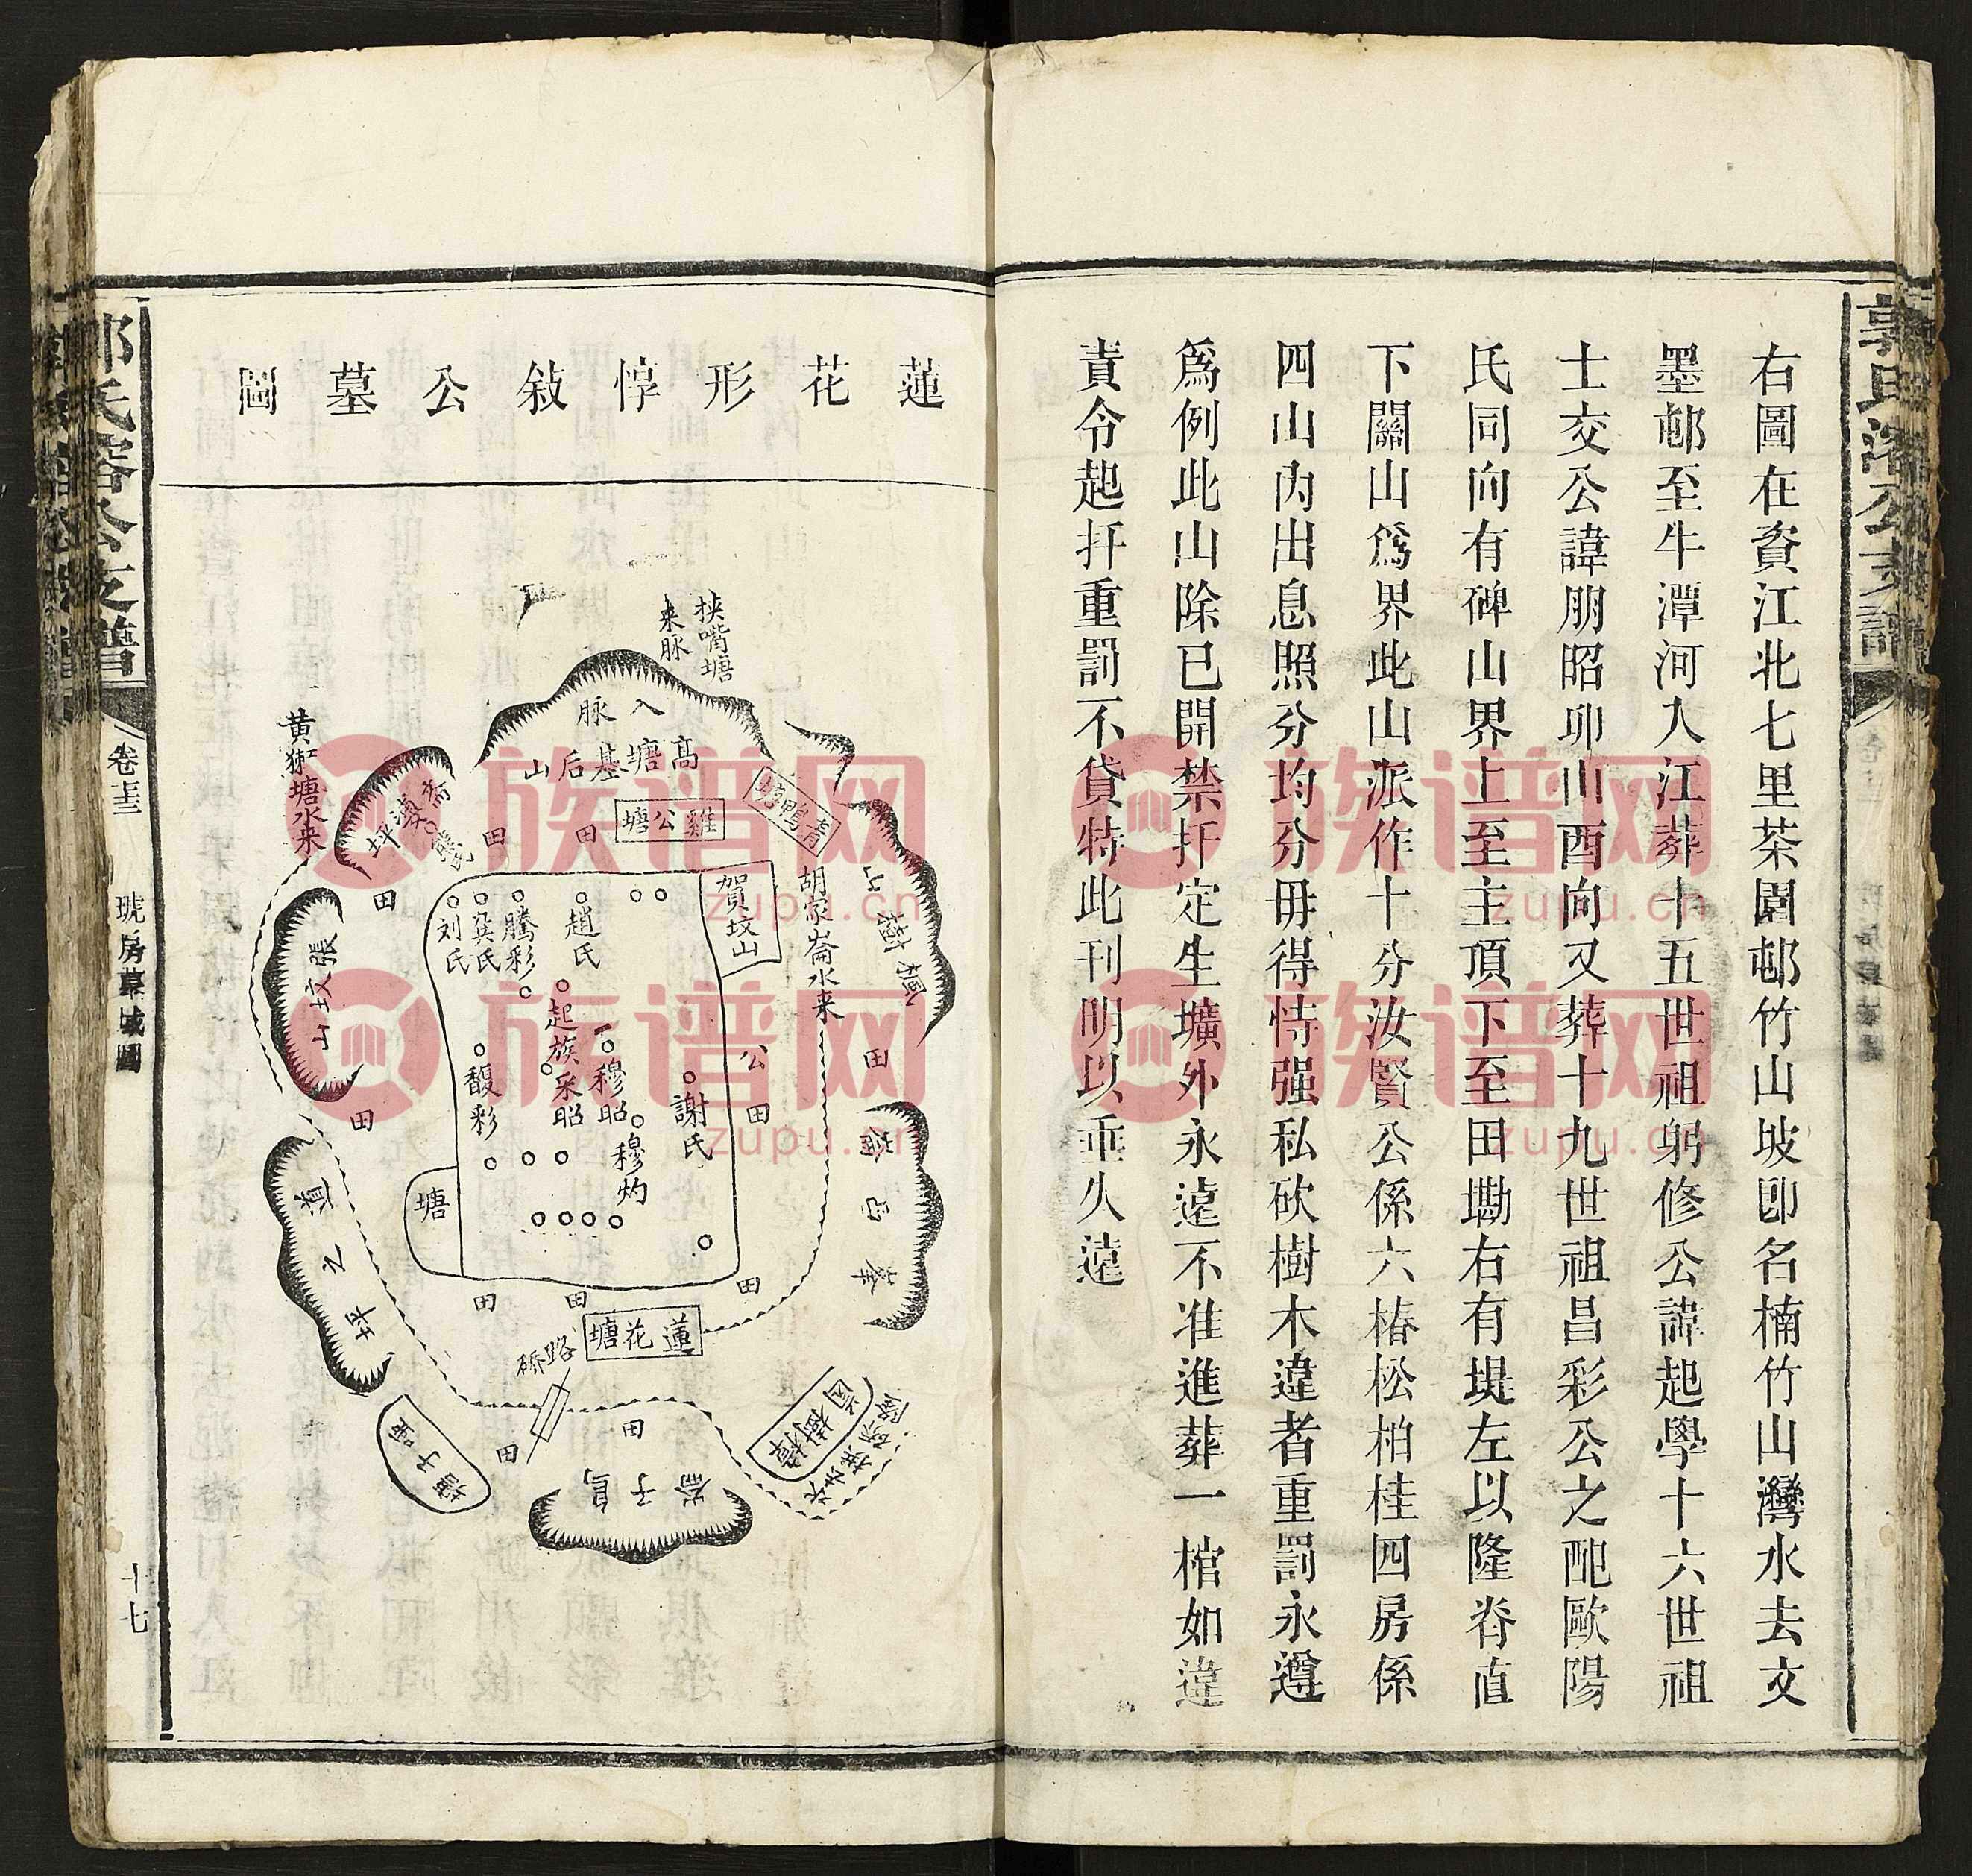 右圖在資江北七里茶園邨竹山坡卽名楠竹山灣水去文
墨邨至牛潭河入江葬十五世祖躬修公諱起學十六世祖
士交公諱朋昭卯山酉向又葬十九世祖昌彩公之配歐陽
氏同向有碑山界上至主頂下至田墈右有堤左以隆脊直
下關山爲界此山派作十分汝賢公係六椿松柏桂四房係
四山內出息照分均分毋得恃强私砍樹木違者重罰永遵
爲例此山除已開禁扦定生壙外永遠不准進葬一棺如違
責令起扦重罰不貸特此刊明以垂久遠
蓮花形惇敍公墓圖
挾嘴塘
來脉
入脉
高塘基后山
雞公塘
青鴨塘
黄㺏塘水来
胡家崙水来
賀坟山
楓樹山
田
田
田
趙氏
騰彩
龚氏
刘氏
張坟山
起族采昭
穆昭
穆灼
馥彩
謝氏
公
田
田
田
塘
道之坪
田
田
田
蓮花塘
路
橋
田
田
樟樹
卷三
琥房墓域圖
十七
族谱网
zupu.cn
族谱网
zupu.cn
族谱网
zupu.cn
族谱网
zupu.cn